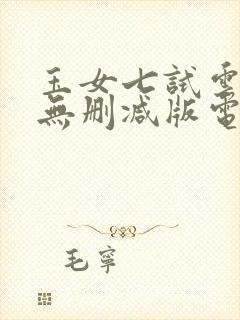 玉女七試電
無删减版電
毛寧